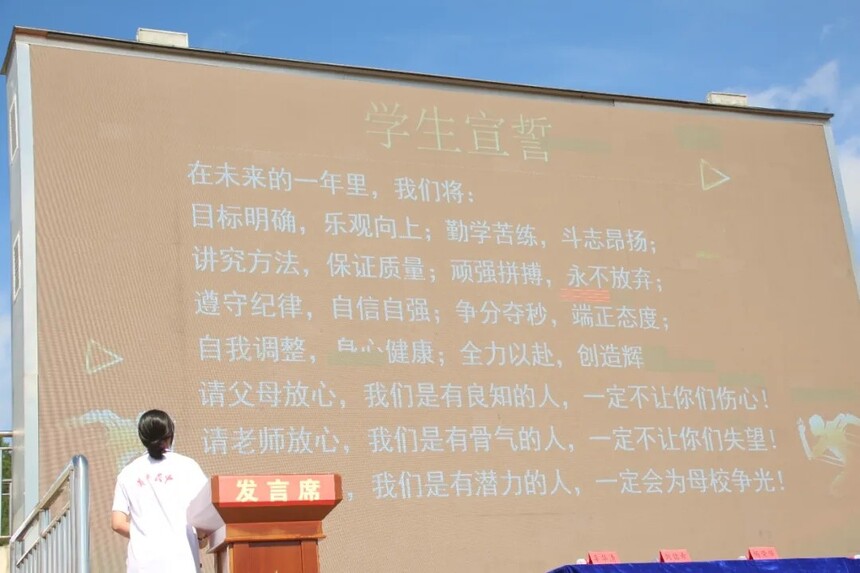 学生宣誓
在未来的一年里，我们将：
目标明确，乐观向上；勤学苦练，斗志昂扬；
讲究方法，保证质量；顽强拼搏，永不放弃；
遵守纪律，自信自强；争分夺秒，端正态度；
自我调整，身心健康；全力以赴，创造辉
请父母放心，我们是有良知的人，一定不让你们伤心！
请老师放心，我们是有骨气的人，一定不让你们失望！
，我们是有潜力的人，一定会为母校争光！
发言席